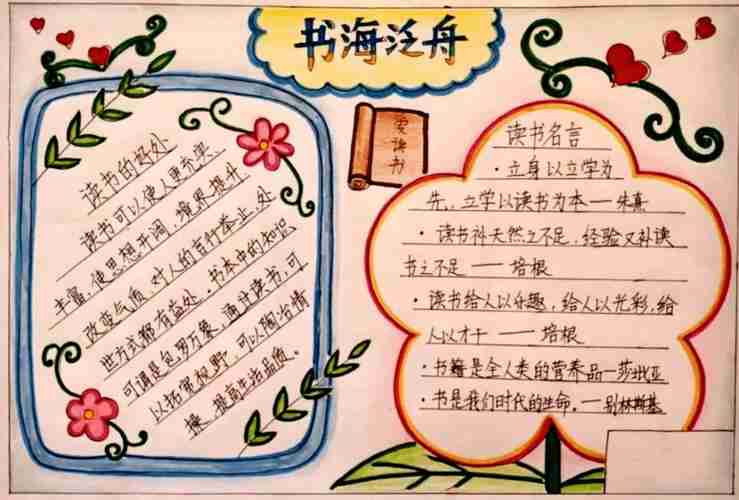 书海泛舟
读书的好处
读书可以使人更充实
丰富,使思想开阔,境界提升
改变气质,对人的言行举止,处
世方式都有益处。书本中的知识
可谓是包罗万象,通过读书,可
以拓宽视野,可以陶冶情
操,提高生活品质。
爱读书
读书名言
·立身以立学为
先,立学以读书为本——朱熹
·读书补天然之不足,经验又补读
书之不足——培根
·读书给人以乐趣,给人以光彩,给
人以才干——培根
·书籍是全人类的营养品—莎士比亚
·书是我们时代的生命。—别林斯基